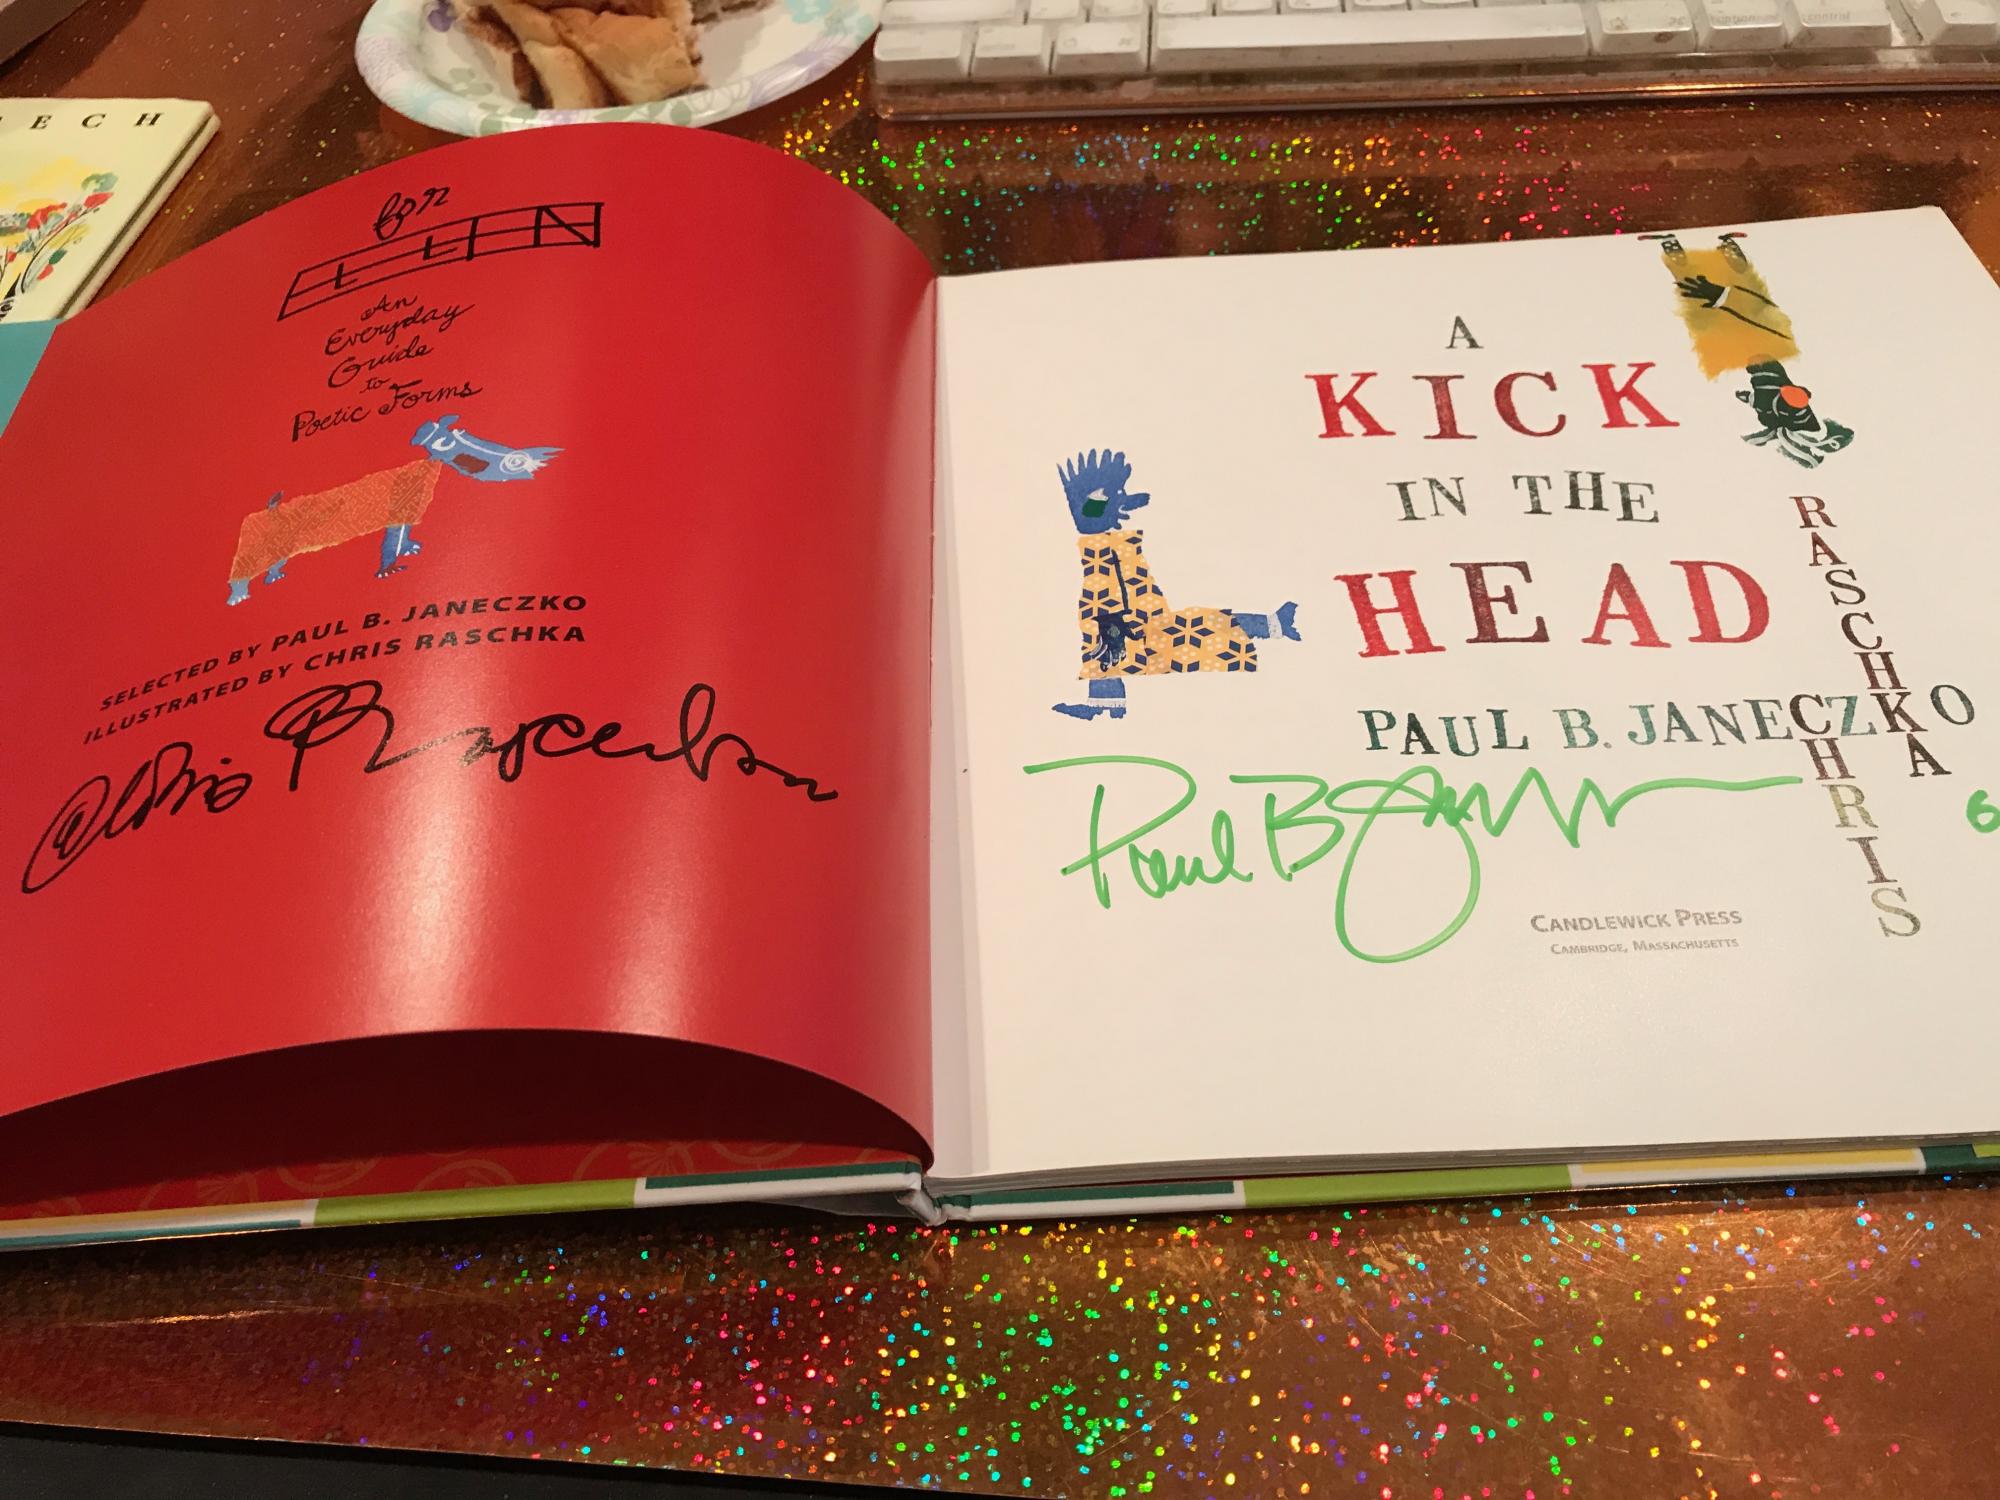 ECH
for
ELLEN
An
Everyday
Guide
to
Poetic Forms
SELECTED BY PAUL B. JANECZKO
ILLUSTRATED BY CHRIS RASCHKA
Chris Raschka
A
KICK
IN THE
HEAD
PAUL B. JANECZKO
RASCHKA
CHRIS
Paul B. Janeczko
6
CANDLEWICK PRESS
CAMBRIDGE, MASSACHUSETTS
option
control